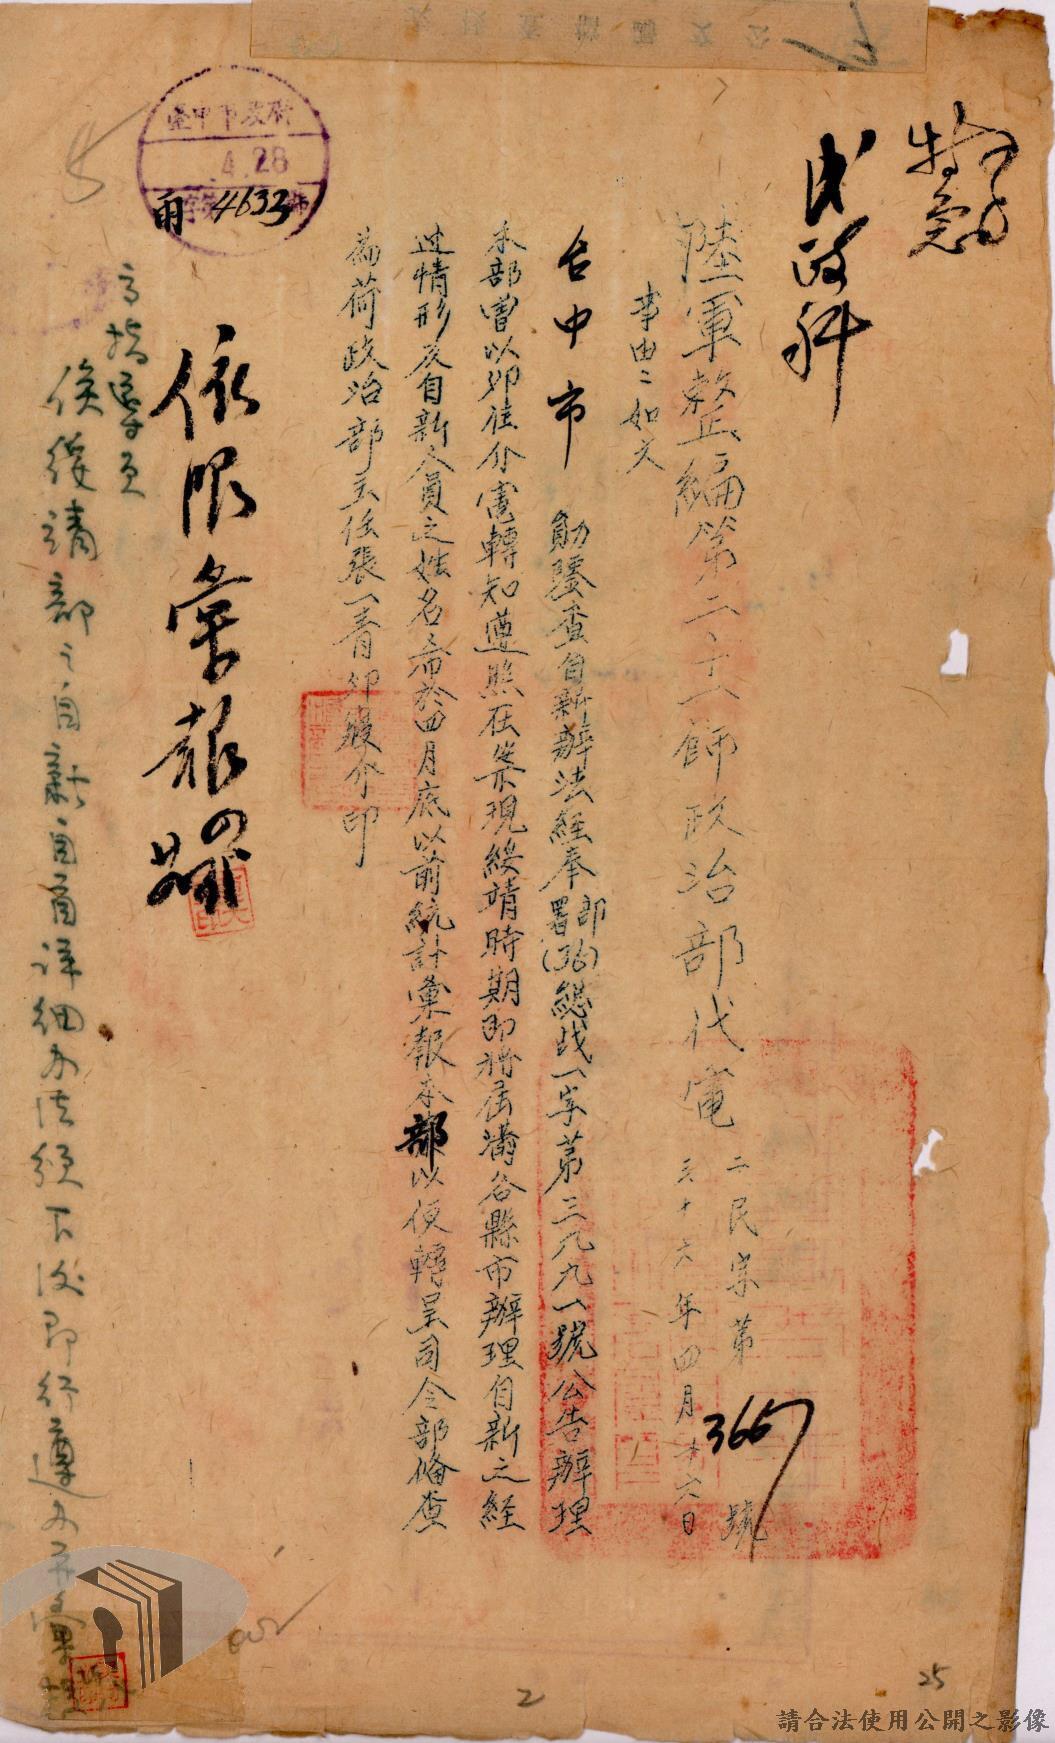 特急
民政科
陸軍整編第二十一師政治部代電
二民字第3667號
三十六年四月廿六日
事由：如文
台中市 勛鑒查自新辦法經奉部署(36)總戰一字第三八九一號公告辦理
本部曾以卯佳介電轉知遵照在案現綏靖時期即將屆滿各縣市辦理自新之經
過情形及自新人員之姓名希於四月底以前統計彙報本部以便轉呈司令部備查
為荷政治部主任張一青卯寢介印
臺中市政府
4.28
4633號
依限彙報
指導員
俟綏靖部之自新自首詳細辦法頒下後即行遵辦
2
25
請合法使用公開之影像